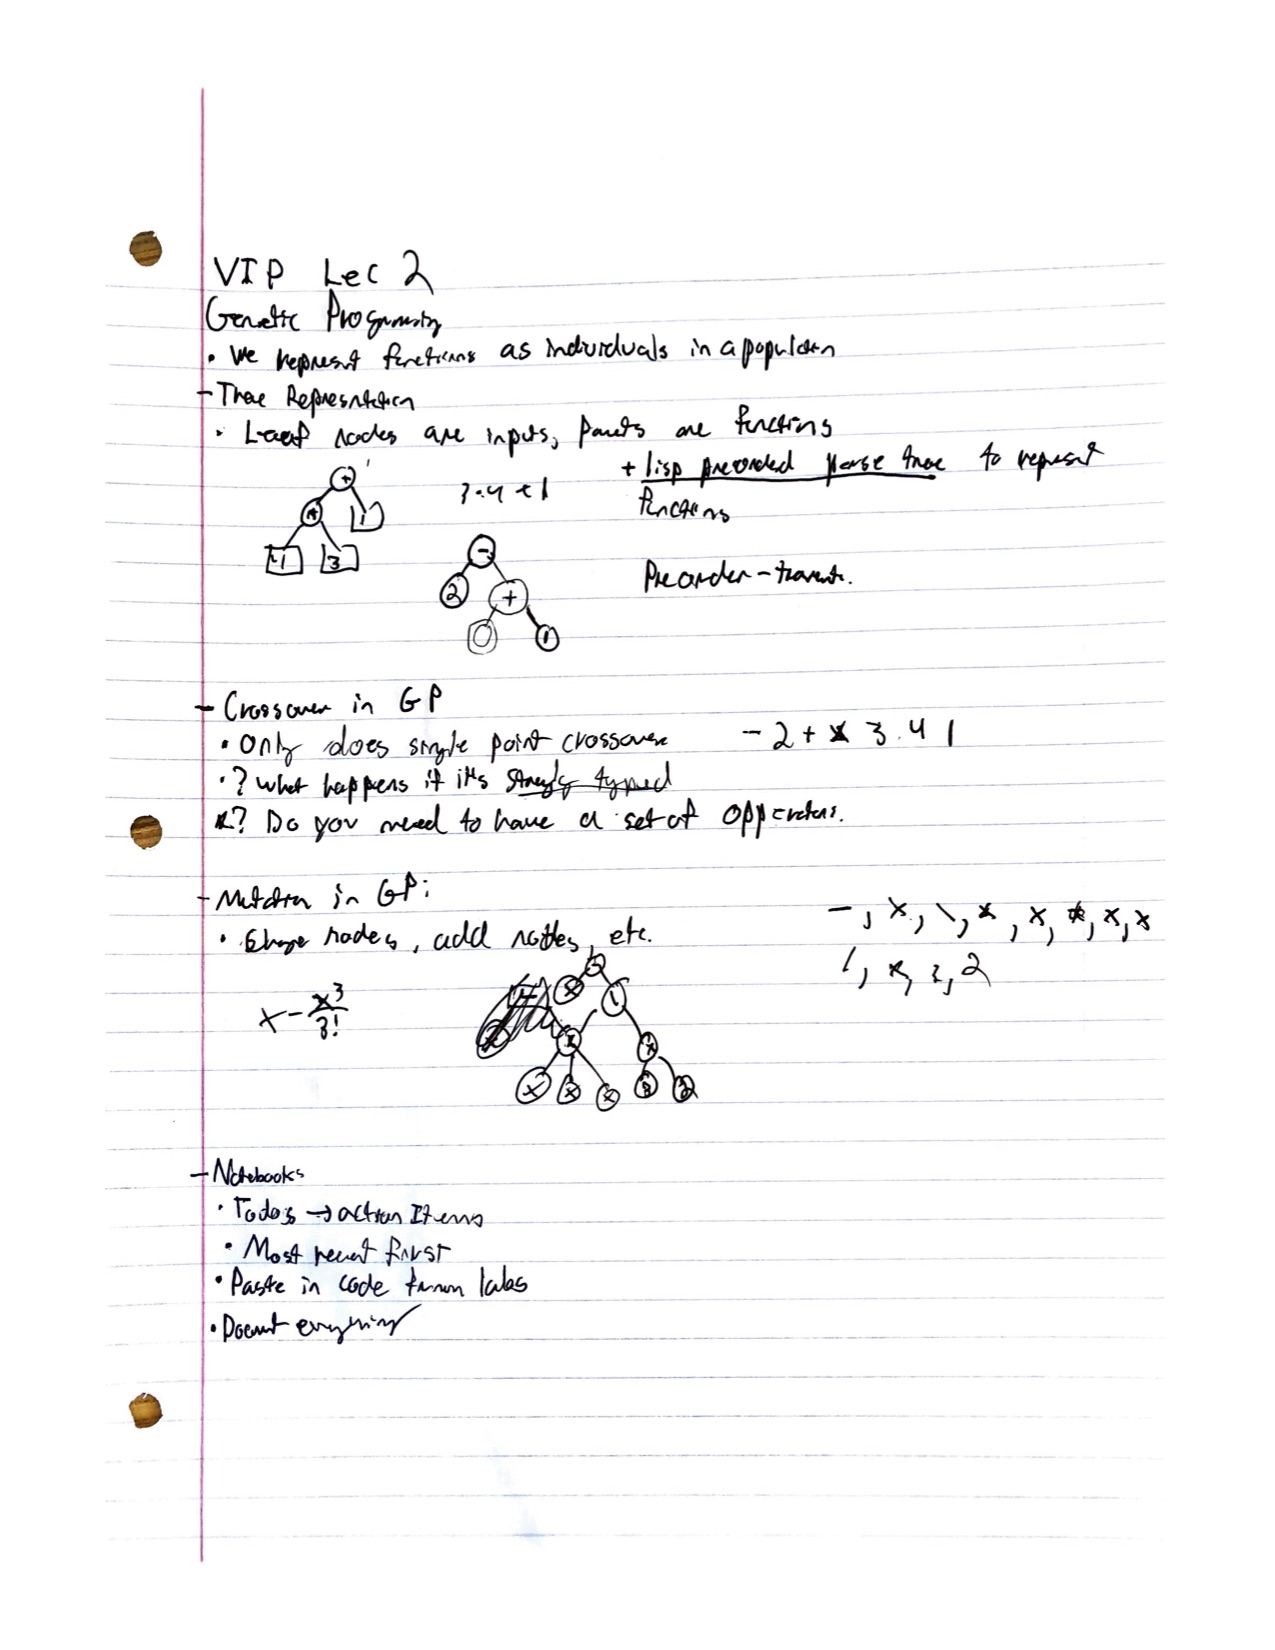 VIP Lec 2
Genetic Programming
• We represent functions as individuals in a population
- Tree Representation
• Leaf nodes are inputs, parents are functions
+ lisp preordered parse tree to represent
functions
3·4+1
+
*
1
4
3
-
2
+
0
1
Preorder-traverse.
- Crossover in GP
• Only does single point crossover
- 2 + * 3·4 1
•? What happens if it's strongly typed
*? Do you need to have a set of opperators.
- Mutation in GP:
• Change nodes, add nodes, etc.
-, x, \, *, x, *, x, x
1, *, 3, 2
x - x³/3!
- Notebooks
• Todos → action Items
• Most recent first
• Paste in code from labs
• Document everything